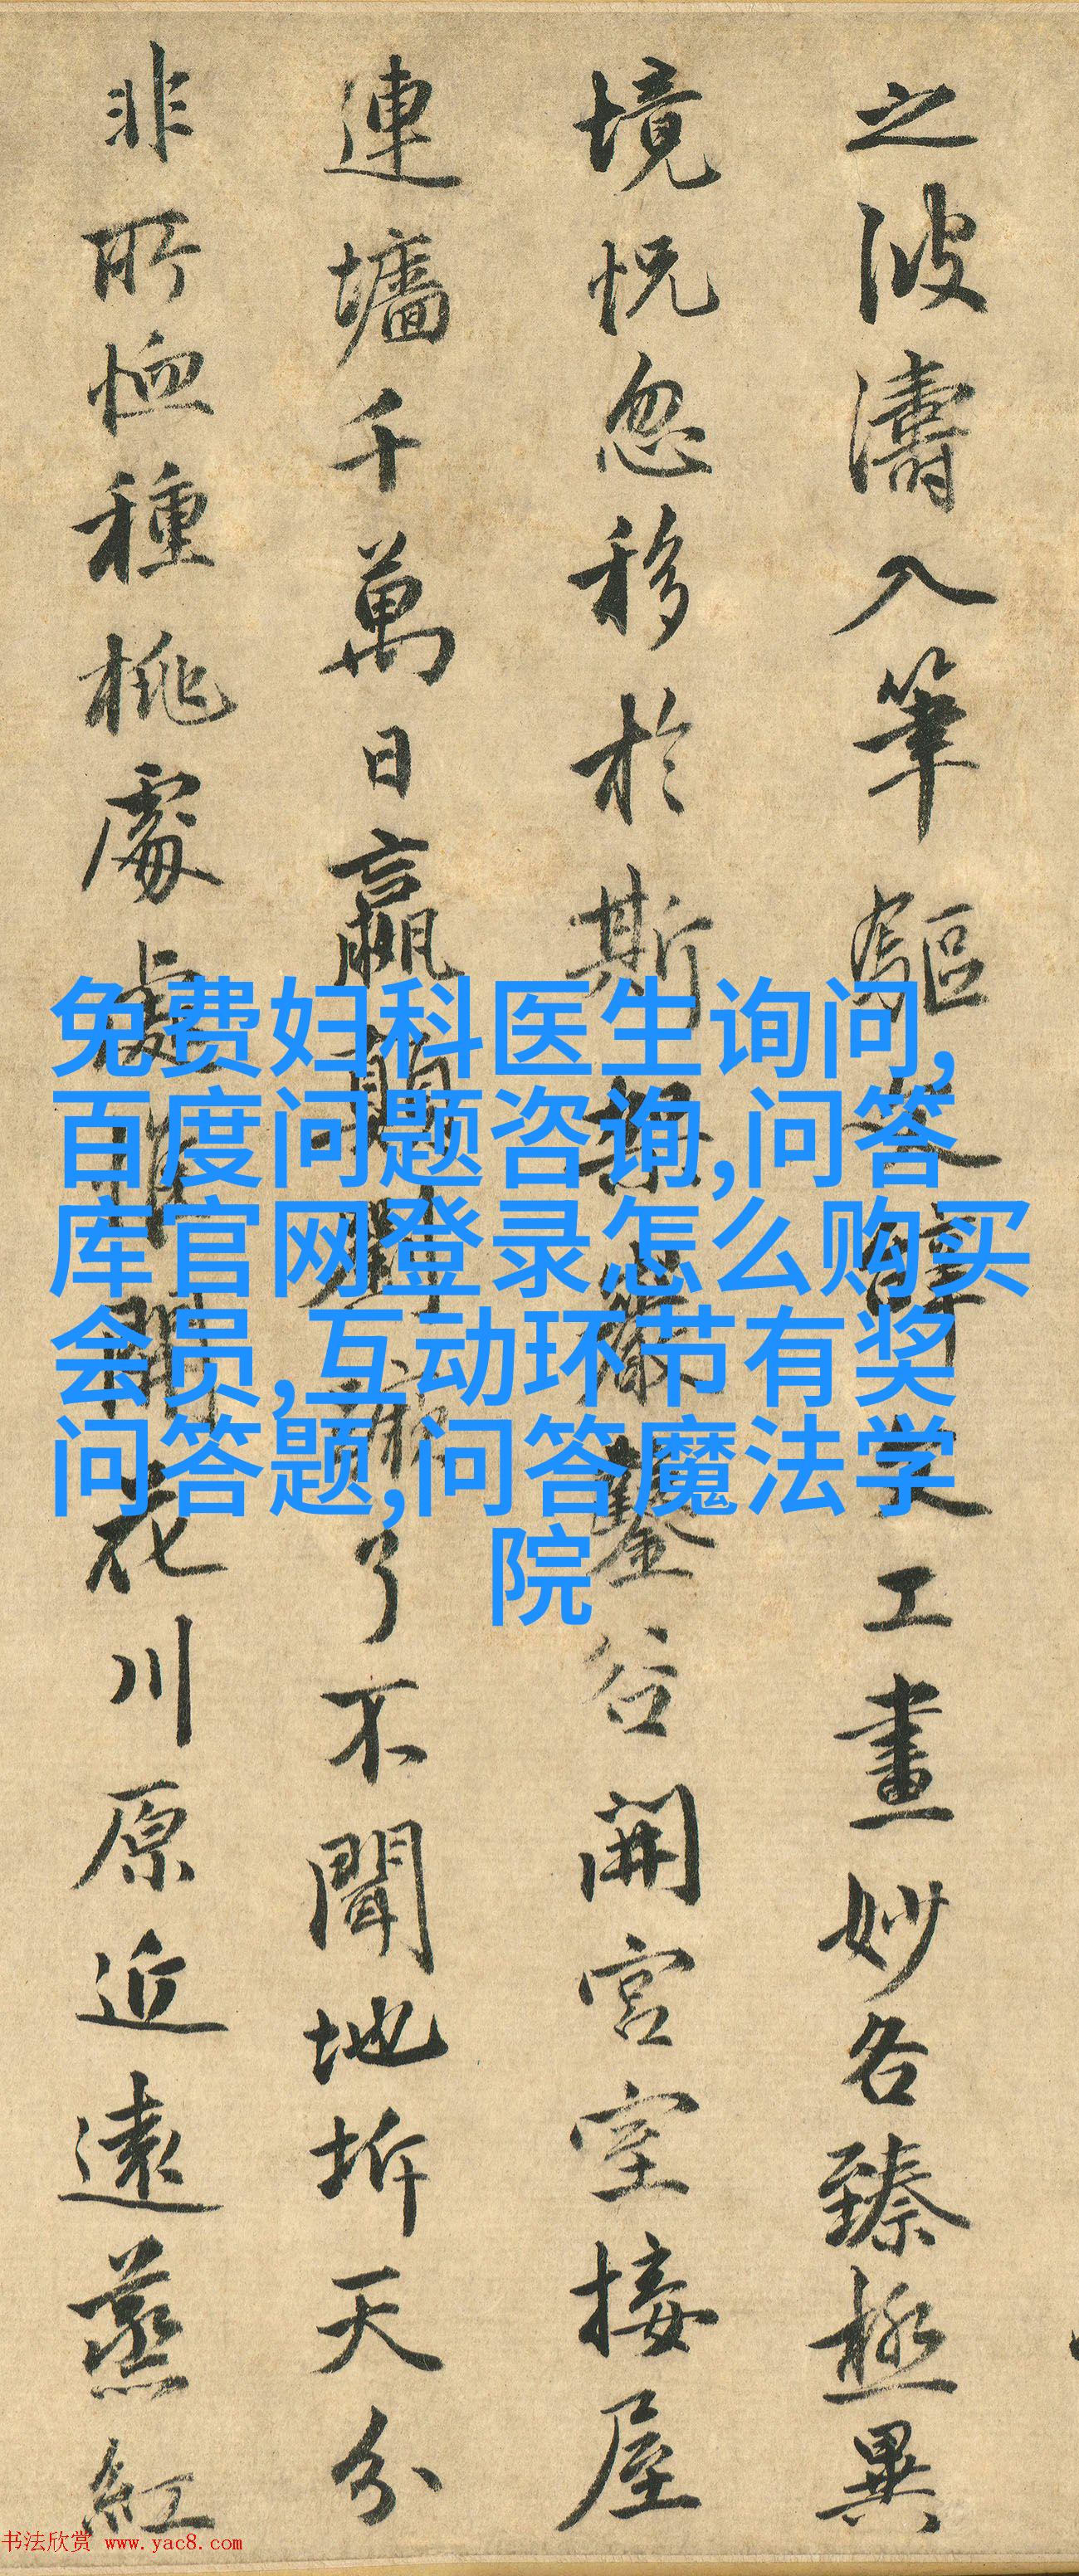 之波濤入筆驅文辭文工畫妙各臻極異
境怳忽移於斯架巖鑿谷開宮室接屋
連墻千萬日嬴顛劉蹶了不聞地坼天分
非所恤種桃處處惟開花川原近遠蒸紅
免费妇科医生询问,
百度问题咨询,问答
库官网登录怎么购买
会员,互动环节有奖
问答题,问答魔法学
院
书法欣赏 www.yac8.com